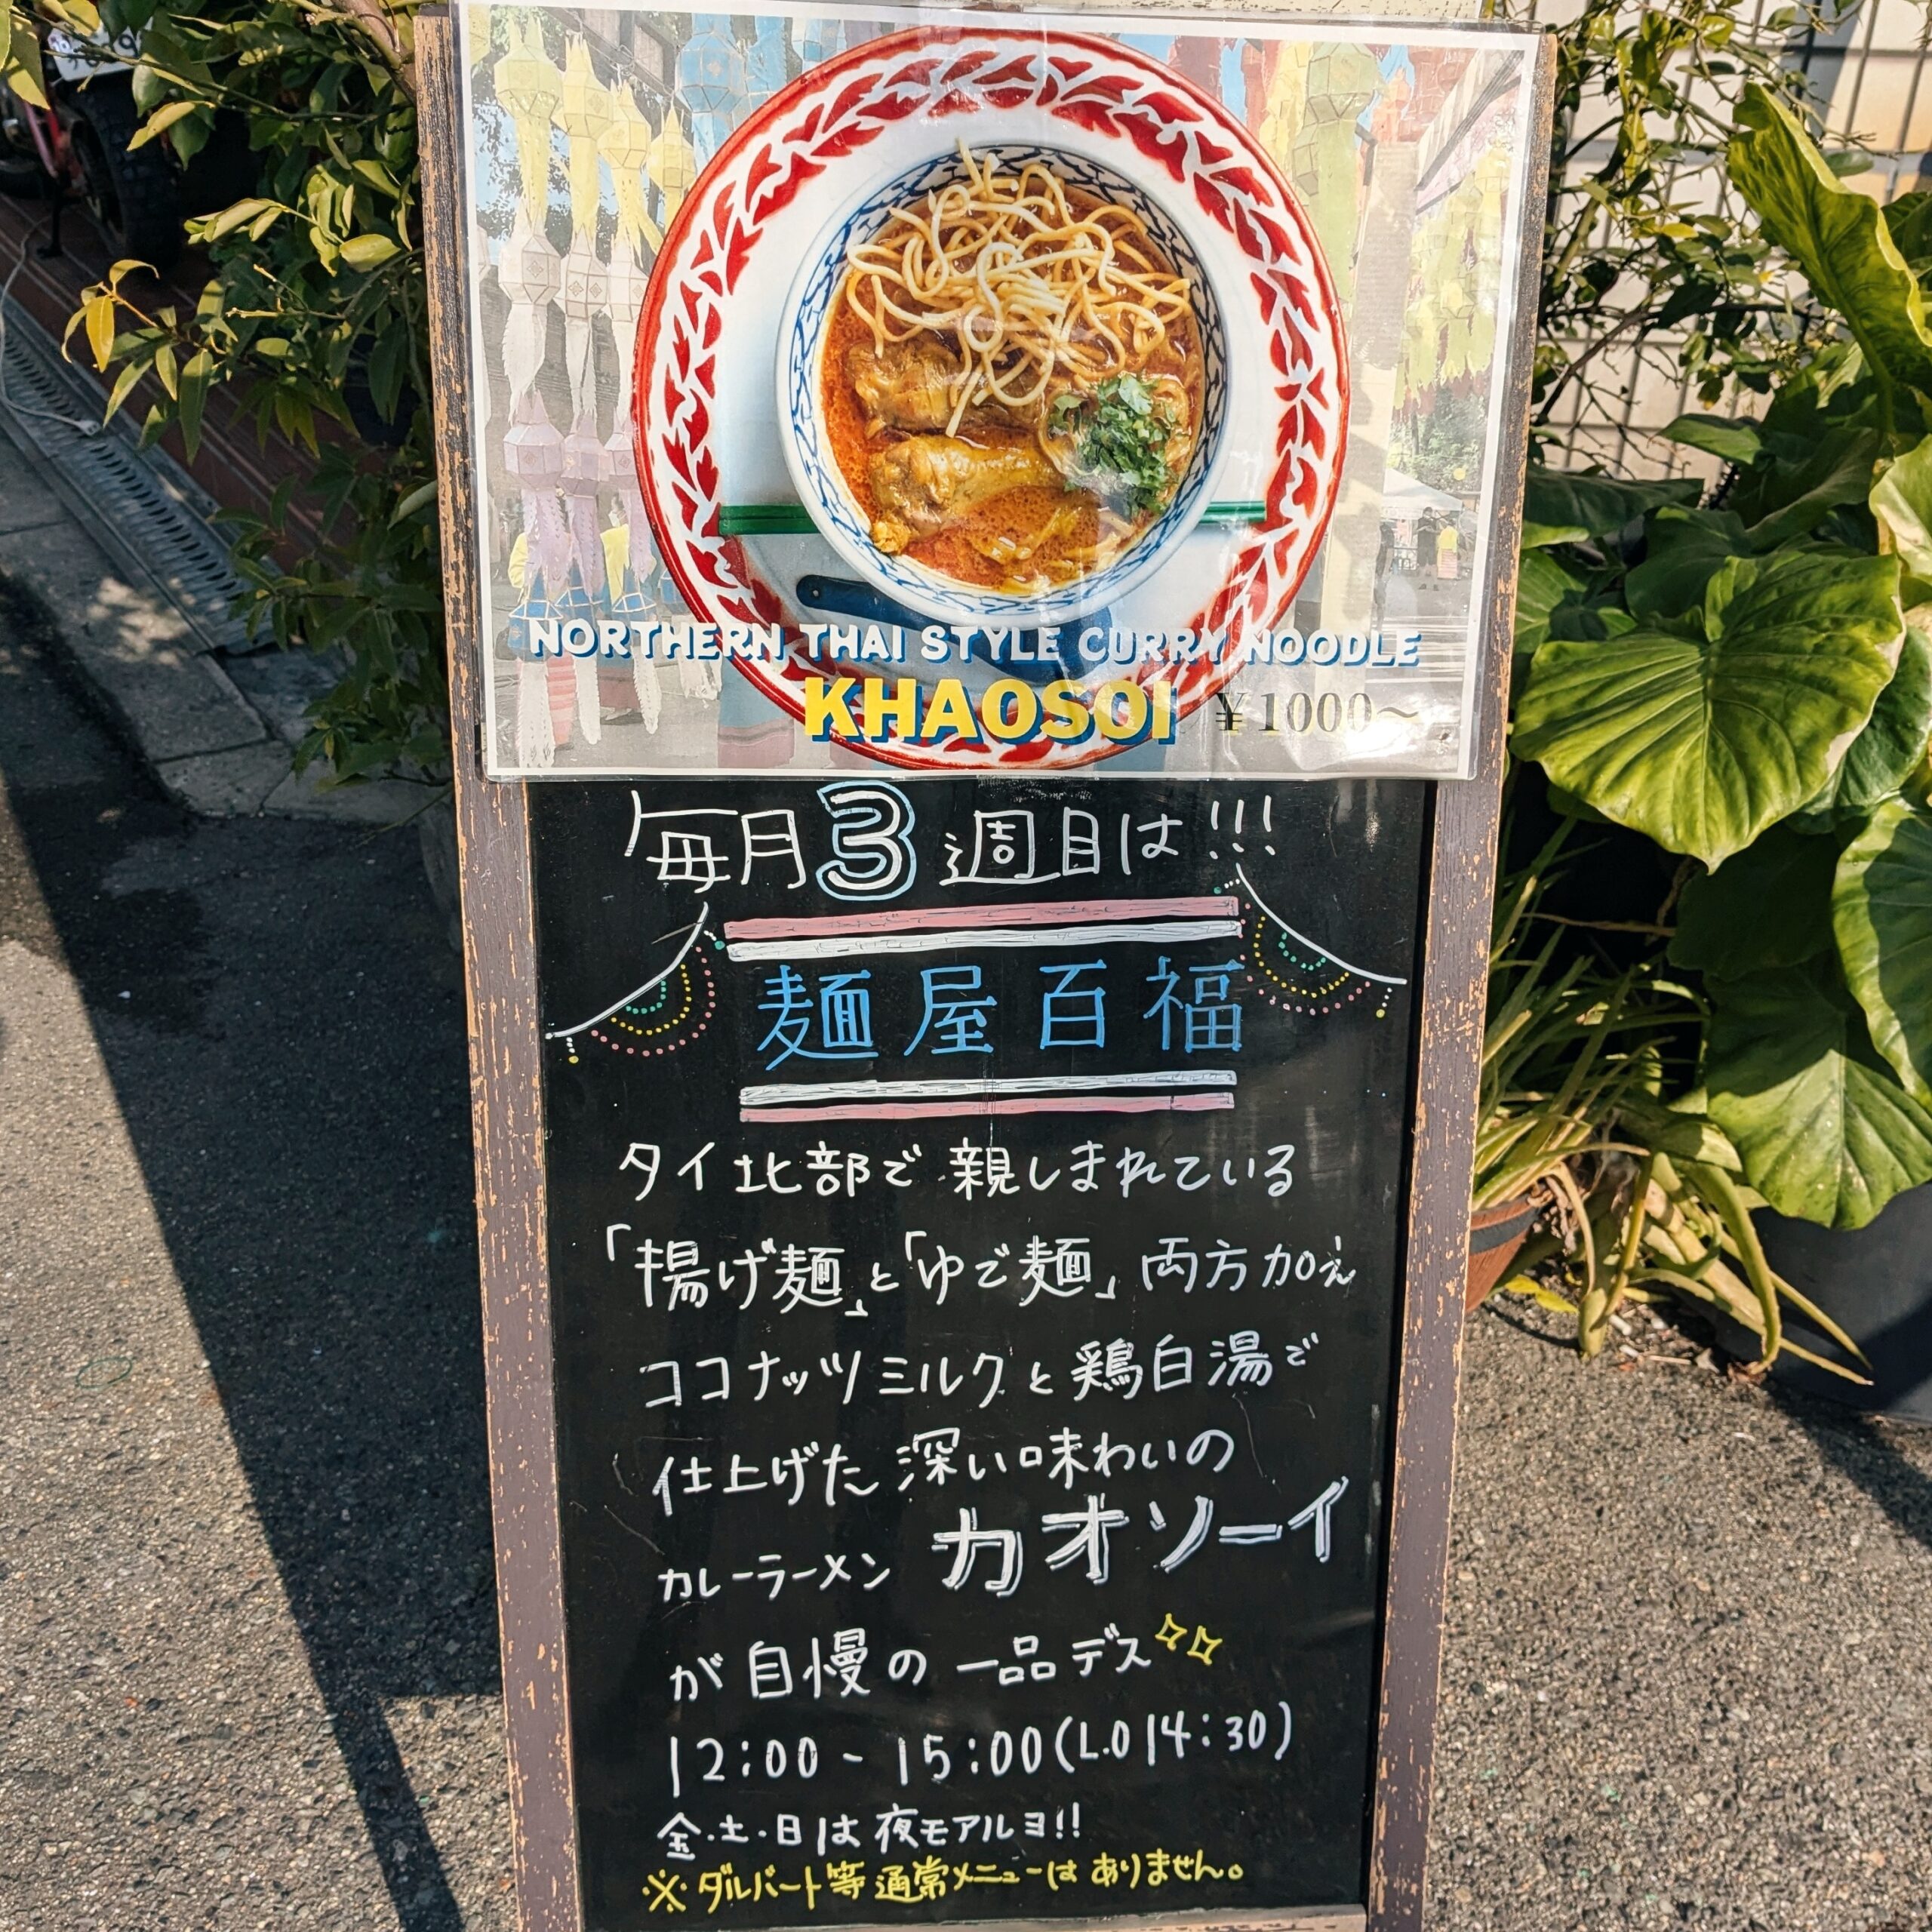 NORTHERN THAI STYLE CURRY NOODLE
KHAOSOI ¥1000〜
毎月3週目は!!!
麺屋百福
タイ北部で親しまれている
「揚げ麺」と「ゆで麺」両方加え
ココナッツミルクと鶏白湯で
仕上げた深い味わいの
カレーラーメン カオソーイ
が自慢の一品デス
12:00-15:00(L.O 14:30)
金・土・日は夜モアルヨ!!
※ダルバート等通常メニューはありません。